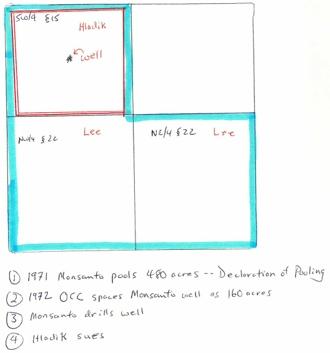 SW/4 §15
Hladik
well
NW/4 §22
Lee
NE/4 §22
Lee
① 1971 Monsanto pools 480 acres -- Declaration of Pooling
② 1972 OCC spaces Monsanto well as 160 acres
③ Monsanto drills well
④ Hladik sues